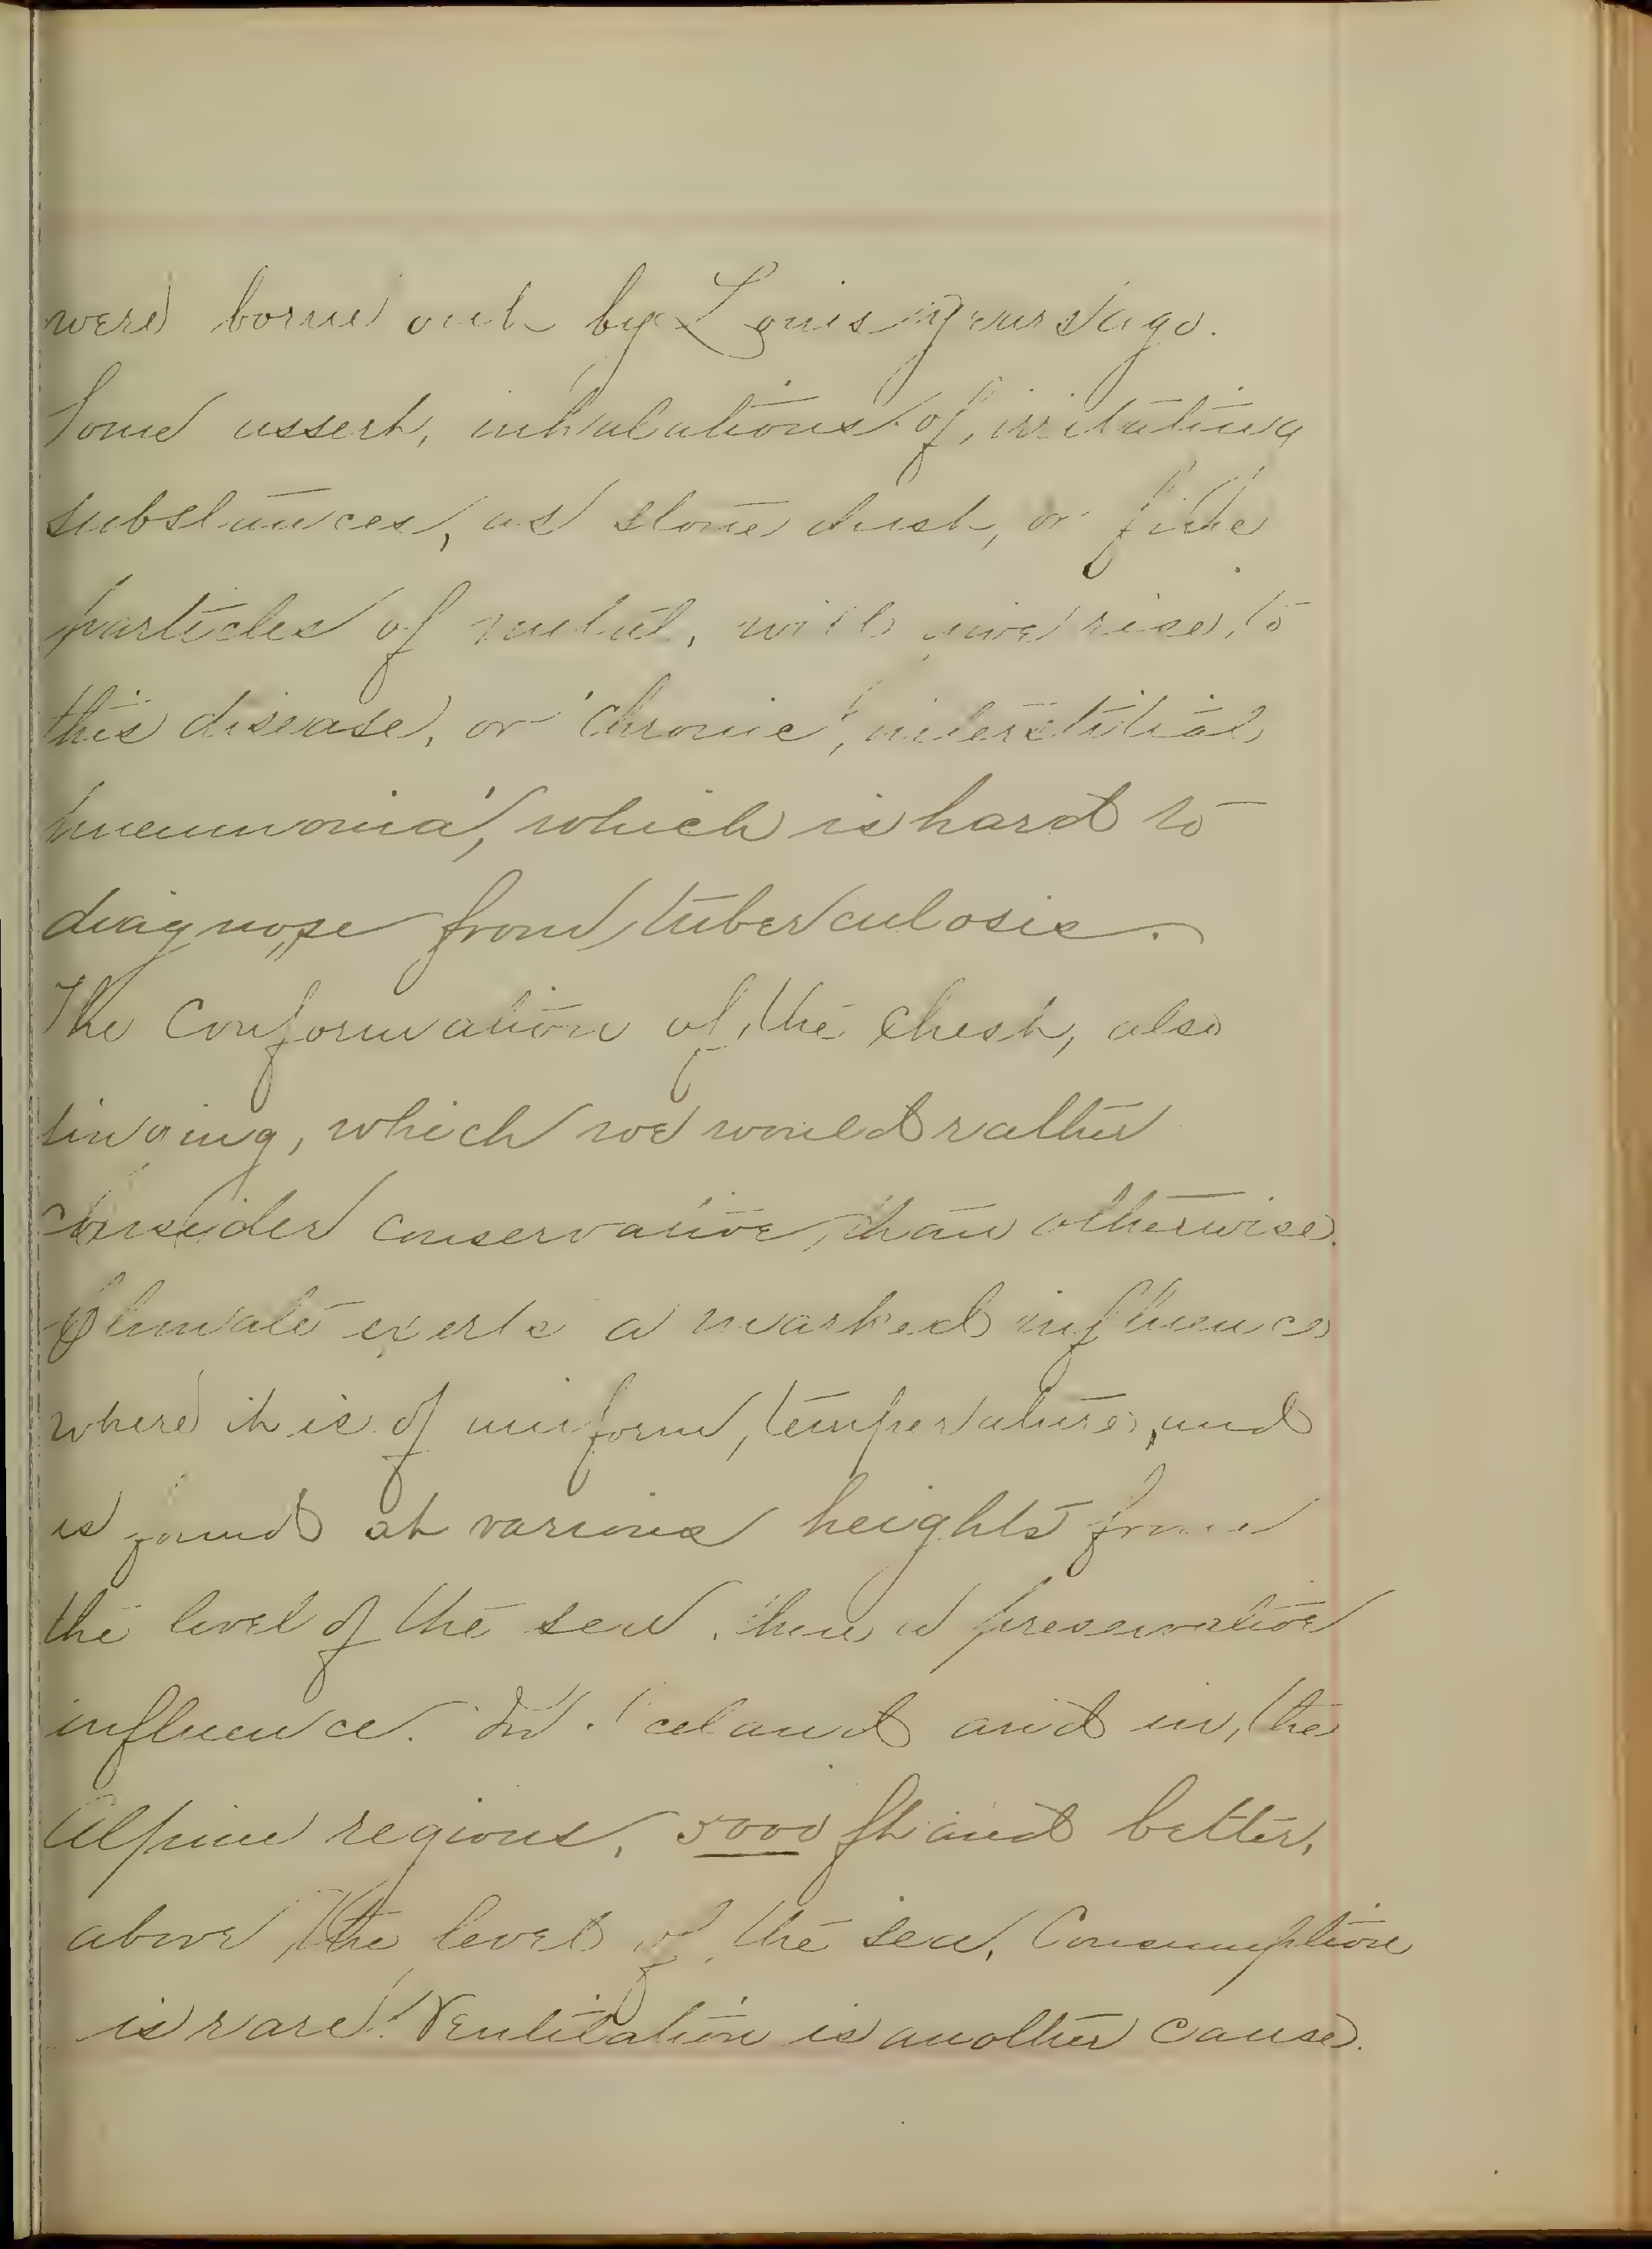 were borne out by Louis years ago.
Some assert, inhalations of, irritating
substances, as stone dust, or fine
particles of metal, will give rise, to
this disease, or 'chronic', interstitial
pneumonia', which is hard to
diagnose from tuberculosis.
The Conformation of the chest, also
singing, which we would rather
consider conservative, than otherwise.
Climate exerts a marked influence
where it is of uniform, temperature, and
is found at various heights from
the level of the sea. has a preservative
influence. In Iceland and in, the
Alpine regions, 5000 ft and better,
above the level of the sea, Consumption
is rare! Ventilation is another cause.